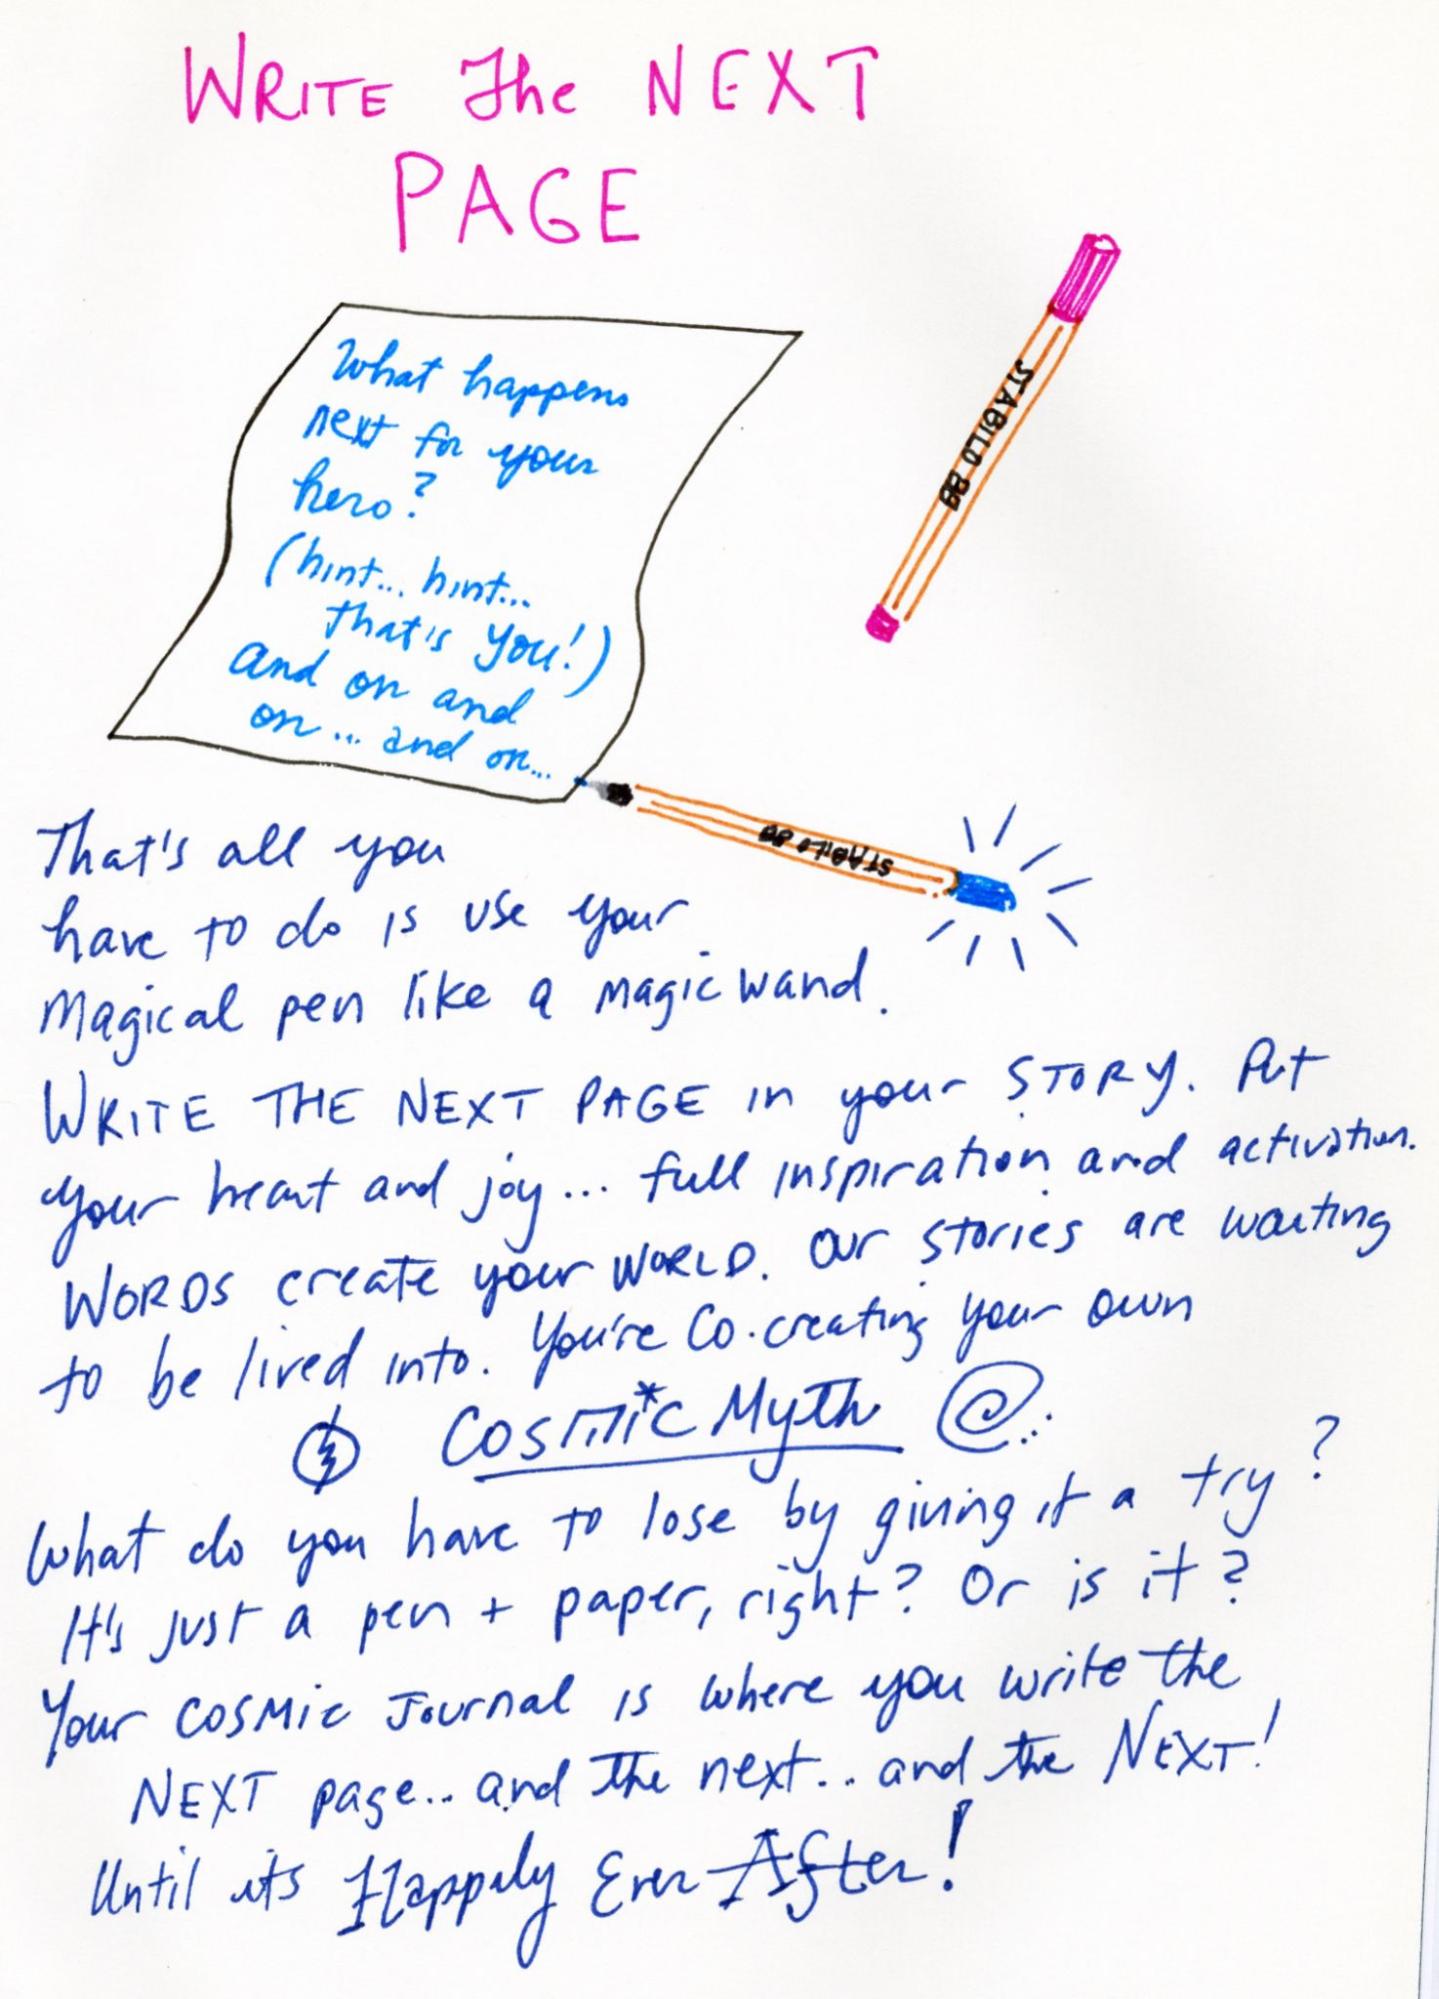 WRITE the NEXT
PAGE
What happens
next for your
hero?
(hint... hint...
that's you!)
and on and
on... and on...
STABILO 88
STABILO 88
That's all you
have to do is use your
Magical pen like a magic wand.
WRITE THE NEXT PAGE in your STORY. Put
your heart and joy... full inspiration and activation.
WORDS create your WORLD. Our stories are waiting
to be lived into. You're Co-creating your own
Cosmic Myth
What do you have to lose by giving it a try?
It's just a pen + paper, right? Or is it?
Your COSMIC Journal is where you write the
NEXT page... and the next... and the NEXT!
Until its Happily Ever After!